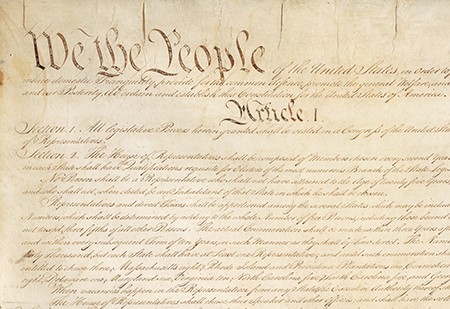 We the People of the United States, in order to
insure domestic Tranquility, provide for the common defence, promote the general Welfare, and
and our Posterity, do ordain and establish this Constitution for the United States of America.
Article. I.
Section. 1. All legislative Powers herein granted shall be vested in a Congress of the United States
of Representatives.
Section. 2. The House of Representatives shall be composed of Members chosen every second Year
in each State shall have Qualifications requisite for Electors of the most numerous Branch of the State
No Person shall be a Representative who shall not have attained to the Age of twenty five Years
and who shall not, when elected, be an Inhabitant of that State in which he shall be chosen.
Representatives and direct Taxes shall be apportioned among the several States which may be included
Numbers, which shall be determined by adding to the whole Number of free Persons, including those bound
not taxed, three fifths of all other Persons. The actual Enumeration shall be made within three Years
and within every subsequent Term of ten Years, in such Manner as they shall by Law direct. The Number
thirty Thousand, but each State shall have at Least one Representative; and until such enumeration shall
entitled to chuse three, Massachusetts eight, Rhode Island and Providence Plantations one, Connecticut
eight, Delaware one, Maryland six, Virginia ten, North Carolina five, South Carolina five, and Georgia
When vacancies happen in the Representation from any State, the Executive Authority thereof
The House of Representatives shall chuse their Speaker and other Officers; and shall have the